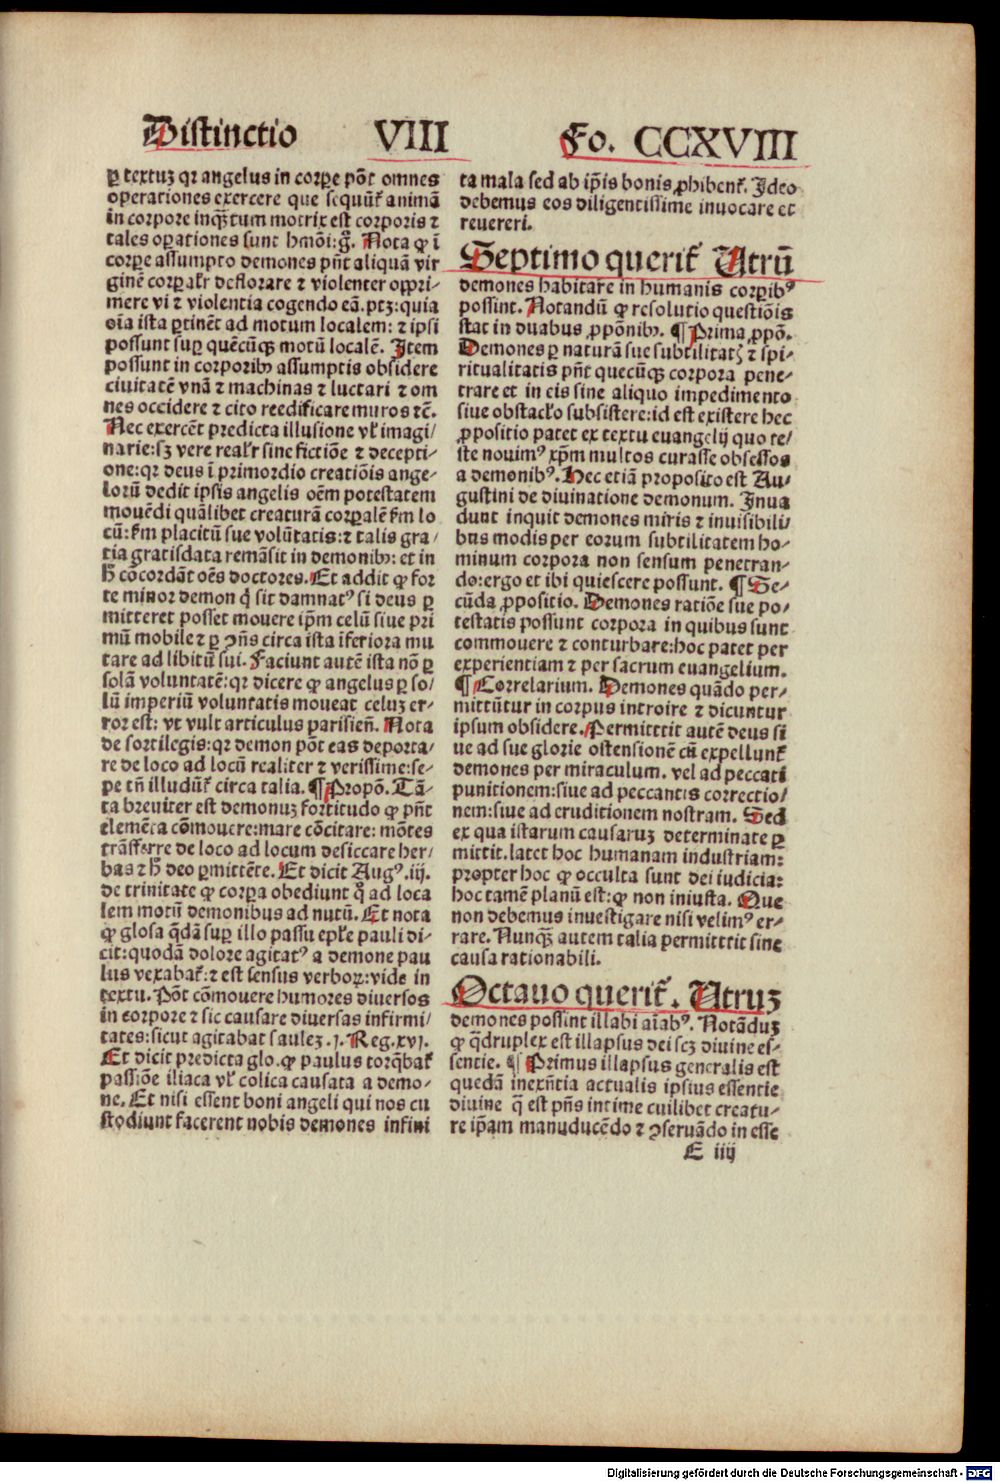 Distinctio VIII Fo. CCXVIII
ꝑ textuꝫ qꝛ angelus in corꝑe põt omnes
operationes exercere que sequũt᷑ animã
in corpore inqꝫtum motrix est corporis ⁊
tales oꝑationes sunt hmõi: gͦ. Nota ꝙ ĩ
corꝑe assumpto demones pñt aliquã vir
ginẽ corꝑałr deflorare ⁊ violenter oppri-
mere vi ⁊ violentia cogendo eã. ptꝫ: quia
oĩa ista ꝑtinẽt ad motum localem: ⁊ ipsi
possunt suꝑ quẽcũqꝫ motũ localẽ. Item
possunt in corporibꝰ assumptis obsidere
ciuitatẽ vnã ⁊ machinas ⁊ luctari ⁊ om
nes occidere ⁊ cito reedificare muros ⁊c̃.
Nec exercẽt predicta illusione vł imagi/
narie: sꝫ vere reałr sine fictiõe ⁊ decepti-
one: qꝛ deus ĩ primordio creatiõis ange-
lorũ dedit ipsis angelis oẽm potestatem
mouẽdi quãlibet creaturã corꝑalẽ ẜm lo
cũ: ẜm placitũ sue volũtatis: ⁊ talis gra/
tia gratisdata remãsit in demonibꝰ: et in
hͦ cõcordãt oẽs doctores. Et addit ꝙ for
te minor demon q̃ sit damnatꝰ si deus ꝑ
mitteret posset mouere ip̃m celũ siue pri
mũ mobile ⁊ ꝑ ꝯñs circa ista ĩferiora mu
tare ad libitũ sui. Faciunt autẽ ista nõ ꝑ
solã voluntatẽ: qꝛ dicere ꝙ angelus ꝑ so/
lũ imperiũ voluntatis moueat celuꝫ er-
ror est: vt vult articulus parisieñ. Nota
de sortilegis: qꝛ demon põt eas deporta/
re de loco ad locũ realiter ⁊ verissime: se-
pe tñ illudũt᷑ circa talia. ¶ Propõ. Tã-
ta breuiter est demonuꝫ fortitudo ꝙ pñt
elemẽta cõmouere: mare cõcitare: mõtes
trãsferre de loco ad locum desiccare her/
bas ⁊ hͦ deo ꝑmittẽte. Et dicit Augꝰ. iij.
de trinitate ꝙ corꝑa obediunt qͦ ad loca
lem motũ demonibus ad nutũ. Et nota
ꝙ glosa q̃dã suꝑ illo passu epłe pauli di-
cit: quodã dolore agitatꝰ a demone pau
lus vexabat᷑: ⁊ est sensus verboꝝ: vide in
textu. Põt cõmouere humores diuersos
in corpore ⁊ sic causare diuersas infirmi/
tates: sicut agitabat sauleꝫ. j. Reg. xvj.
Et dicit predicta glo. ꝙ paulus torq̃bat᷑
passiõe iliaca vł colica causata a demo-
ne. Et nisi essent boni angeli qui nos cu
stodiunt facerent nobis demones infini
ta mala sed ab ip̃is bonis ꝓhibent᷑. Ideo
debemus eos diligentissime inuocare et
reuereri.
Septimo querit᷑ Utrũ
demones habitare in humanis corꝑibꝰ
possint. Notandũ ꝙ resolutio questiõis
stat in duabus ꝓpõnibꝰ. ¶ Prima ꝓpõ.
Demones ꝑ naturã sue subtilitatꝭ ⁊ spi-
ritualitatis pñt quecũqꝫ corpora pene-
trare et in eis sine aliquo impedimento
siue obstacło subsistere: id est existere hec
ꝓpositio patet ex textu euangelij quo te/
ste nouimꝰ xp̃m multos curasse obsessos
a demonibꝰ. Hec etiã proposito est Au-
gustini de diuinatione demonum. Inua
dunt inquit demones miris ⁊ inuisibili/
bus modis per eorum subtilitatem ho-
minum corpora non sensum penetran-
do: ergo et ibi quiescere possunt. ¶ Se-
cũda ꝓpositio. Demones ratiõe sue po-
testatis possunt corpora in quibus sunt
commouere ⁊ conturbare: hoc patet per
experientiam ⁊ per sacrum euangelium.
¶ Correlarium. Demones quãdo per-
mittũtur in corpus introire ⁊ dicuntur
ipsum obsidere. Permittit autẽ deus si
ue ad sue glorie ostensionẽ cũ expellunt᷑
demones per miraculum. vel ad peccati
punitionem: siue ad peccantis correctio/
nem: siue ad eruditionem nostram. Sed
ex qua istarum causaruꝫ determinate ꝑ
mittit. latet hoc humanam industriam:
propter hoc ꝙ occulta sunt dei iudicia:
hoc tamẽ planũ est: ꝙ non iniusta. Que
non debemus inuestigare nisi velimꝰ er-
rare. Nunqꝫ autem talia permittit sine
causa rationabili.
Octauo querit᷑. Utruꝫ
demones possint illabi aĩabꝰ. Notãduꝫ
ꝙ q̃druplex est illapsus dei scꝫ diuine es-
sentie. ¶ Primus illapsus generalis est
quedã inexñtia actualis ipsius essentie
diuine q̃ est pñs intime cuilibet creatu-
re ip̃am manuducẽdo ⁊ ꝯseruãdo in esse
E iiij
Digitalisierung gefördert durch die Deutsche Forschungsgemeinschaft - DFG